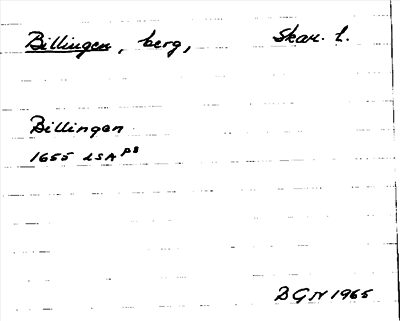 Billingen, berg, Skar. l.
Billingen
1655 LSA ps
BGN 1965